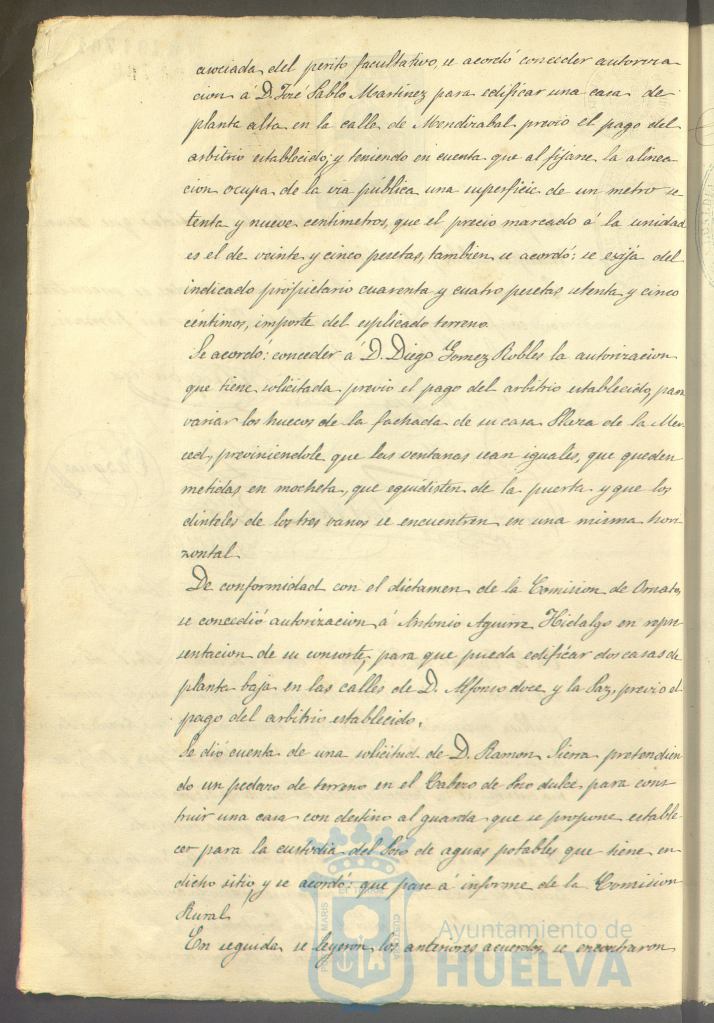 asociada del perito facultativo, se acordó conceder autoriza
cion á D. José Pablo Martinez para edificar una casa de
planta alta en la calle de Mendizabal previo el pago del
arbitrio establecido; y teniendo en cuenta que al fijarse la alinea
cion ocupa de la via pública una superficie de un metro se
tenta y nueve centimetros, que el precio marcado á la unidad
es el de veinte y cinco pesetas, tambien se acordó: se exija del
indicado propietario cuarenta y cuatro pesetas setenta y cinco
céntimos, importe del esplicado terreno.
Se acordó: conceder á D. Diego Gomez Robles la autorizacion
que tiene solicitada previo el pago del arbitrio establecido, para
variar los huecos de la fachada de su casa Plaza de la Mer
ced, previniendole que las ventanas sean iguales, que queden
metidas en mocheta, que equidisten de la puerta y que los
dinteles de los tres vanos se encuentren en una misma hori
zontal.
De conformidad con el dictamen de la Comision de Ornato,
se concedió autorizacion á Antonio Aguirre Hidalgo en repre
sentacion de su consorte, para que pueda edificar dos casas de
planta baja en las calles de D. Alfonso doce y la Paz, previo el
pago del arbitrio establecido.
Se dió cuenta de una solicitud de D. Ramon Sierra pretendien
do un pedazo de terreno en el Cabezo de Pozo dulce para cons
truir una casa con destino al guarda que se propone estable
cer para la custodia del Pozo de aguas potables que tiene en
dicho sitio, y se acordó: que pase á informe de la Comision
Rural.
En seguida se leyeron los anteriores acuerdos, se encontraron
Ayuntamiento de
HUELVA